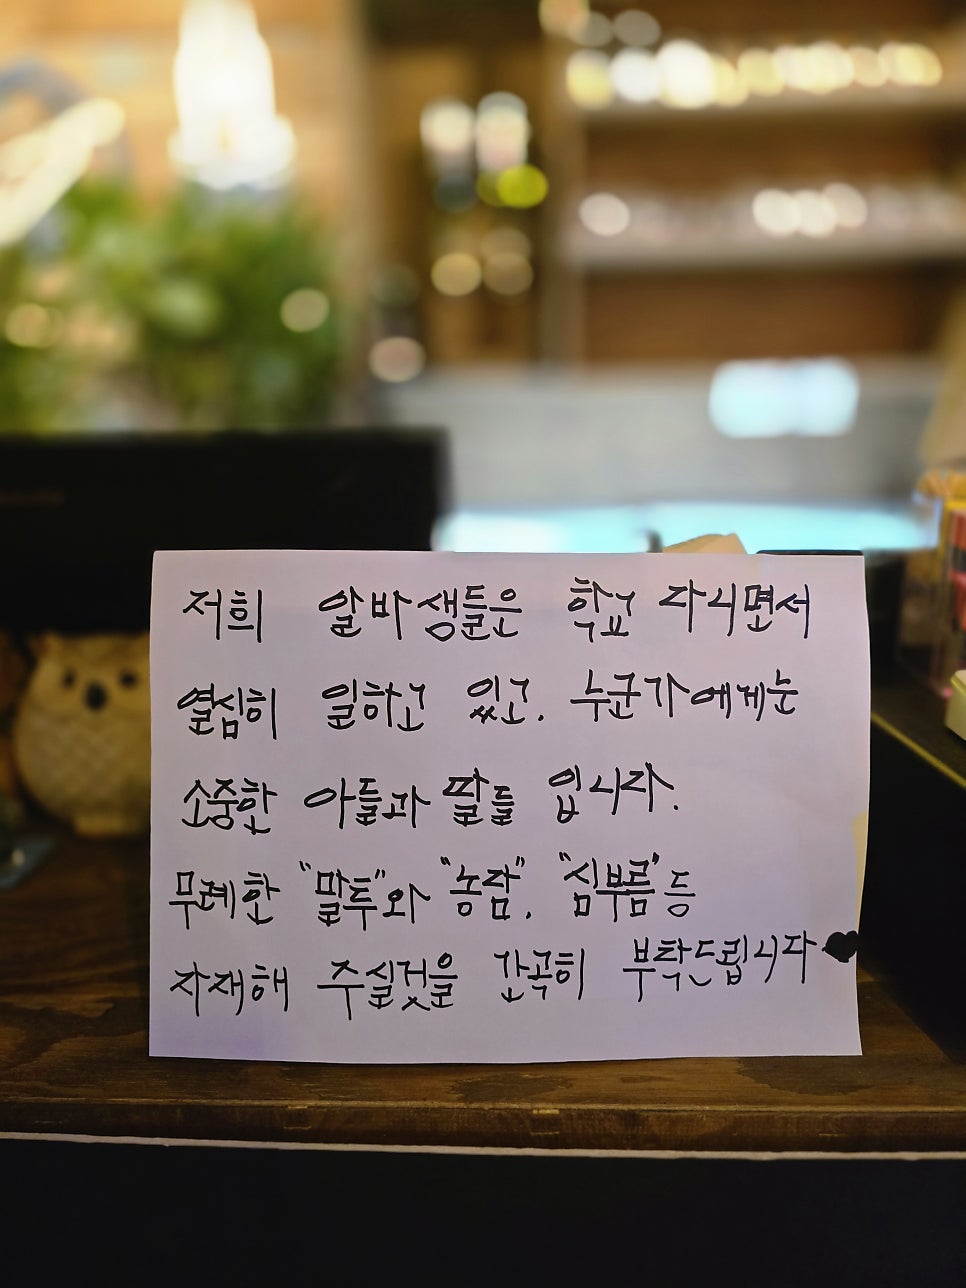 저희 알바생들은 학교 다니면서
열심히 일하고 있고, 누군가에게는
소중한 아들과 딸들 입니다.
무례한 "말투"와 "농담", "심부름"등
자재해 주실것을 간곡히 부탁드립니다♥